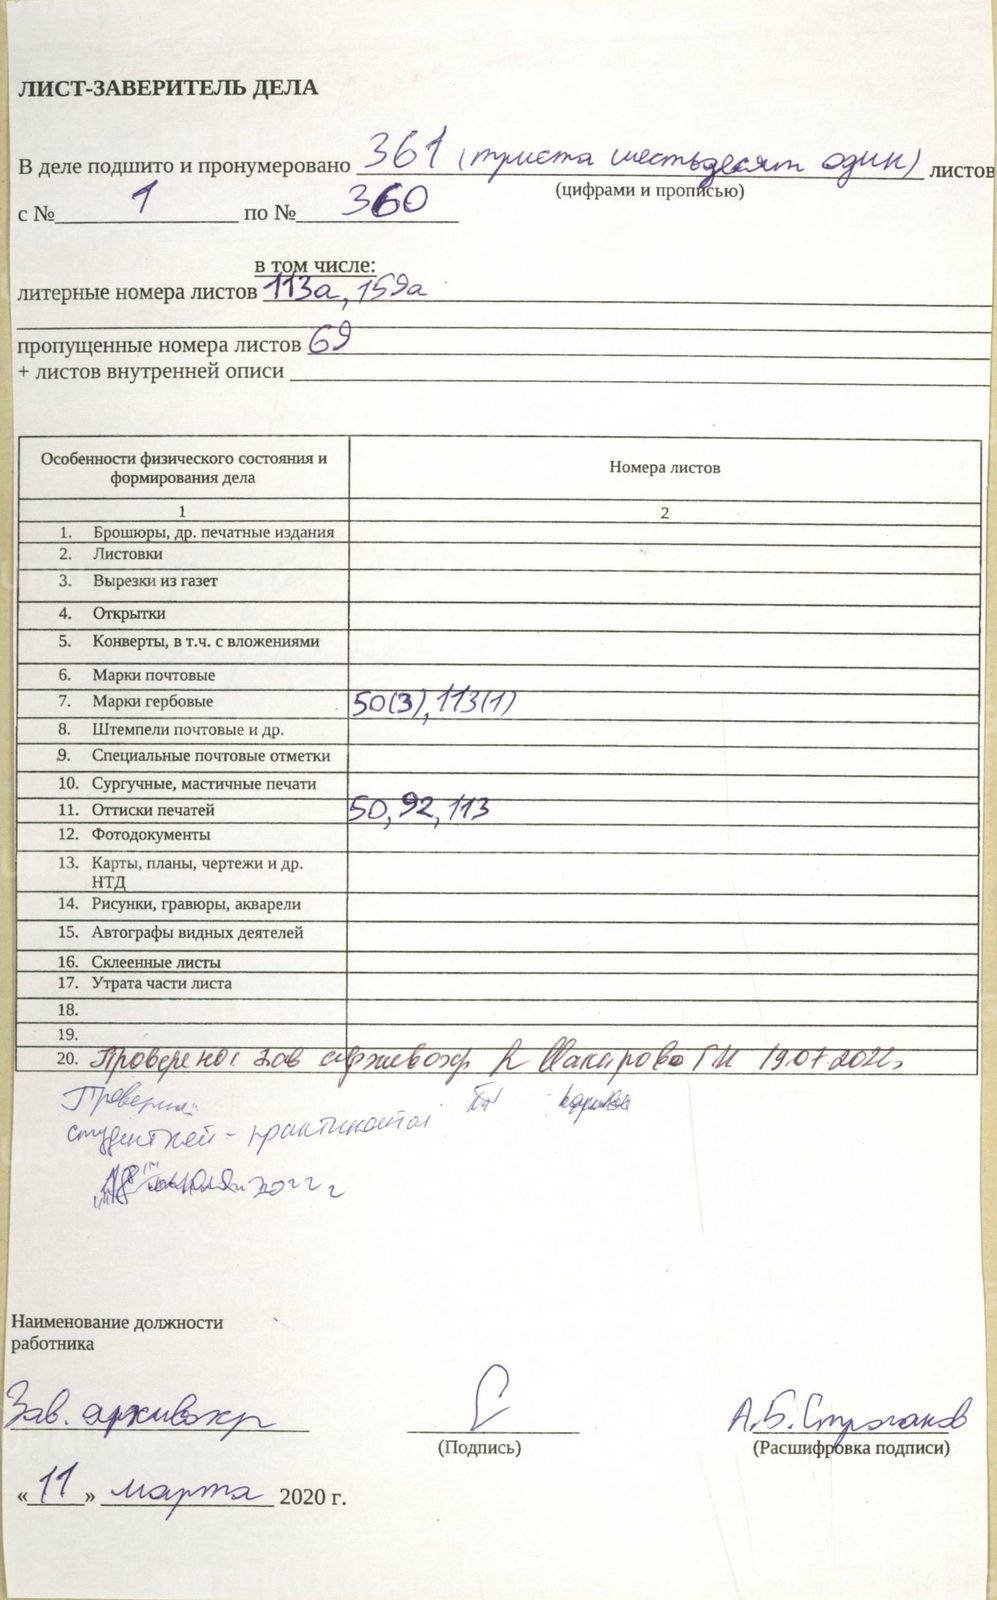 ЛИСТ-ЗАВЕРИТЕЛЬ ДЕЛА
В деле подшито и пронумеровано 361 (триста шестьдесят один) листов
(цифрами и прописью)
с № 1 по № 360
в том числе:
литерные номера листов 113а, 159а
пропущенные номера листов 69
+ листов внутренней описи
Особенности физического состояния и формирования дела
Номера листов
1 2
1. Брошюры, др. печатные издания
2. Листовки
3. Вырезки из газет
4. Открытки
5. Конверты, в т.ч. с вложениями
6. Марки почтовые
7. Марки гербовые 50(3), 113(1)
8. Штемпели почтовые и др.
9. Специальные почтовые отметки
10. Сургучные, мастичные печати
11. Оттиски печатей 50, 92, 113
12. Фотодокументы
13. Карты, планы, чертежи и др.
НТД
14. Рисунки, гравюры, акварели
15. Автографы видных деятелей
16. Склеенные листы
17. Утрата части листа
18.
19.
20. Проверено: зав архивохр 19.07.2022г
студенткой-практиканткой
Наименование должности
работника
Зав. архивохр А.Б. Строганов
(Подпись) (Расшифровка подписи)
«11» марта 2020 г.